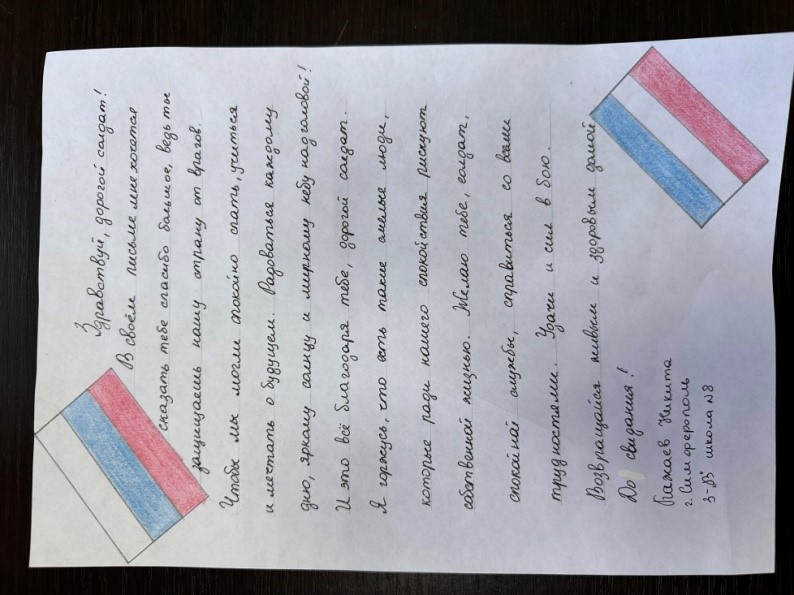 Здравствуй, дорогой солдат!
В своём письме мне хочется
сказать тебе спасибо большое, ведь ты
защищаешь нашу страну от врагов.
Чтобы мы могли спокойно спать, учиться
и мечтать о будущем. Радоваться каждому
дню, яркому солнцу и мирному небу над головой!
И это всё благодаря тебе, дорогой солдат.
Я горжусь, что есть такие смелые люди,
которые ради нашего спокойствия рискуют
собственной жизнью. Желаю тебе, солдат,
спокойной службы, справиться со всеми
трудностями. Удачи и сил в бою.
Возвращайся живым и здоровым домой
До свидания!
Пажаев Никита
г. Симферополь
3-"В" школа №8